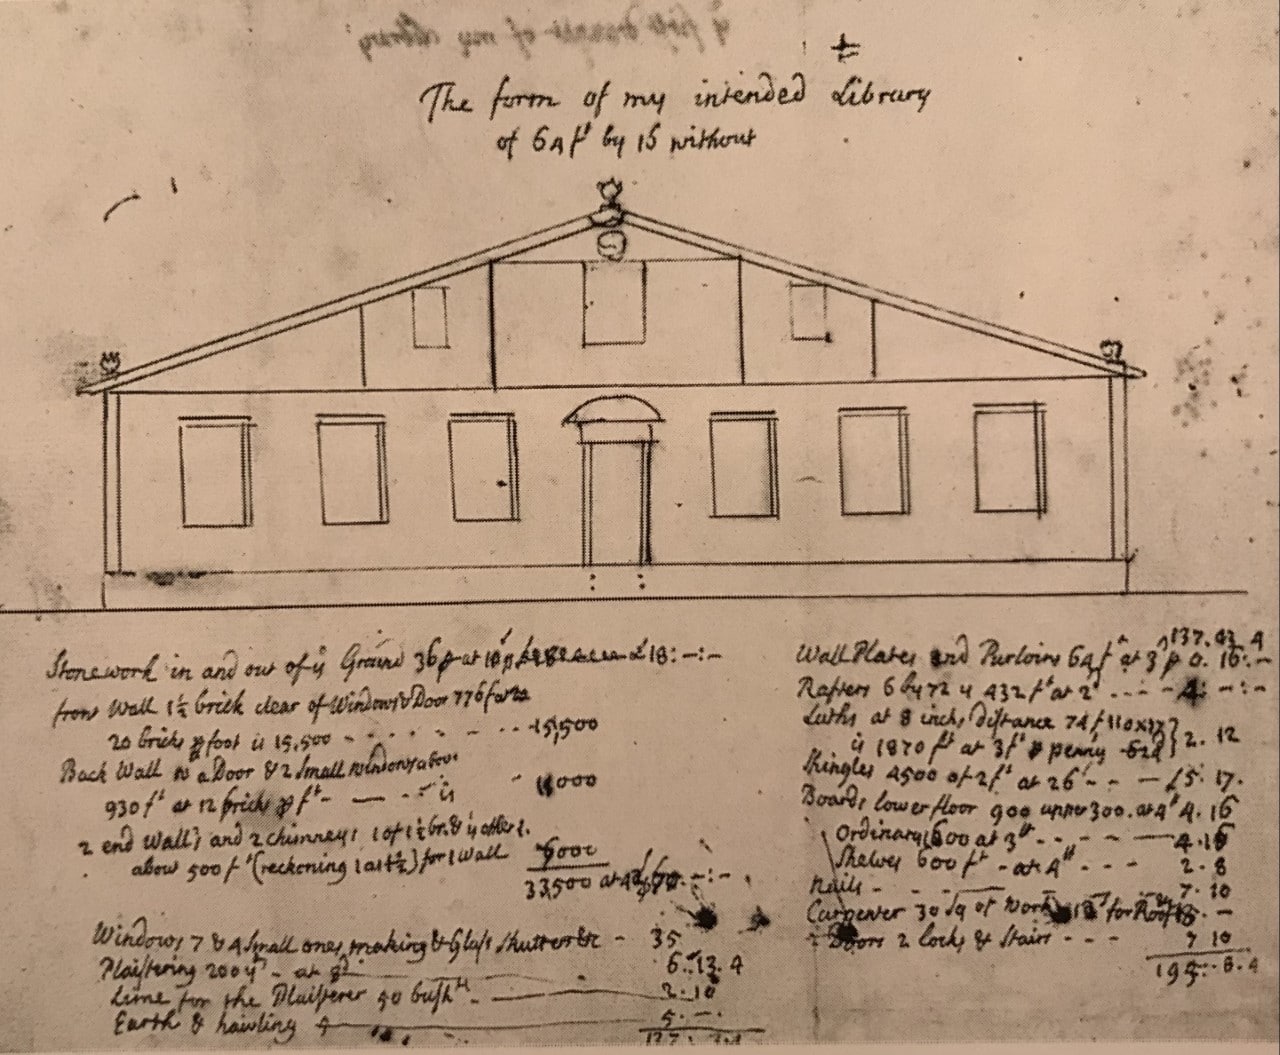 The form of my intended Library
of 64 ft by 15 without
Stonework in and out of ye Ground 36 p at £18:-:-
front Wall 1½ brick clear of Windows & Door 776 f
20 bricks p foot is 15,500 - - - - - - 15,500
Back Wall a Door & 2 Small windows above
930 ft at 12 bricks p ft - is 11000
2 end Walls and 2 chimneys 1 of 1½ br. & ye other 1.
above 500 ft (reckoning 1 at 1½) for 1 Wall 7000
33,500 at
Windows 7 & 4 Small ones making & Glass Shutters &c - 35
Plaistering 200 yd - at 8d 6.13.4
Lime for the Plaisterer 50 bushll - 2.10
Earth & hawling 5.-.
137.43.4
Wall Plates and Purloins 64 ft at 3 p 0.16.-
Rafters 6 by 72 is 432 ft at 2d - - - 4:-:-
Laths at 8 inches distance 74 f
is 1870 ft at 3 ft p penny 2.12
Shingles 4500 of 2 ft at 26 - - - £5.17.
Boards lower floor 900 upper 300. at 4d 4.16
Ordinary 1600 at 3d - - - - 4.16
Shelves 600 ft - at 4d - - - 2.8
Nails - - - 7.10
Carpenter 30 sq of Work for Roof
2 Doors 2 locks & Stairs - - - 7 10
195.8.4